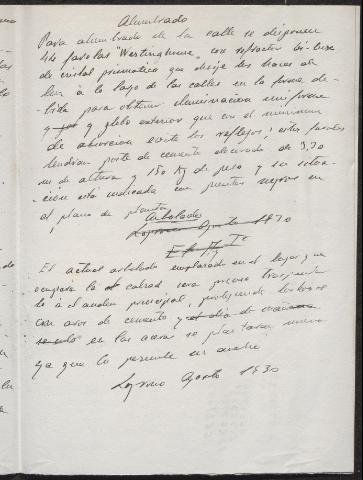 Alumbrado
Para alumbrado de la calle se disponen
44 farolas "Westinghouse", con refractor bi-luxe
de cristal prismatico que dirije los haces de
luz a lo largo de las calles en la forma de-
bida para obtener iluminación uniforme
y globo exterior que con el minimum
de absorcion evite los reflejos; estas farolas
tendran poste de cemento decorado de 3,30
m de altura y 150 Kg de peso y su situa-
ción está indicada con puntos negros en
el plano de planta
Arbolado
Logroño Agosto 1930
El
El actual arbolado emplazado en el lugar que
ocupará la calzada será preciso trasplantar
lo al anden principal, protegiendo
con aros de cemento y el dia de mañana
en las aceras se plantaran nuevo
ya que lo permite su ancho
Logroño Agosto 1930